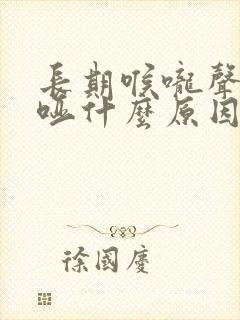 長期喉嚨聲
啞什麼原因
徐國慶